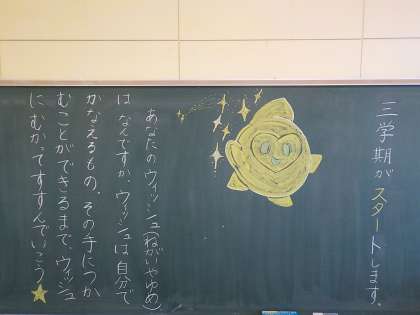 三学期がスタートします。
あなたのウィッシュ(ねがいやゆめ)
はなんですか。ウィッシュは自分で
かなえるもの。その手につか
むことができるまで、ウィッシュ
にむかってすすんでいこう